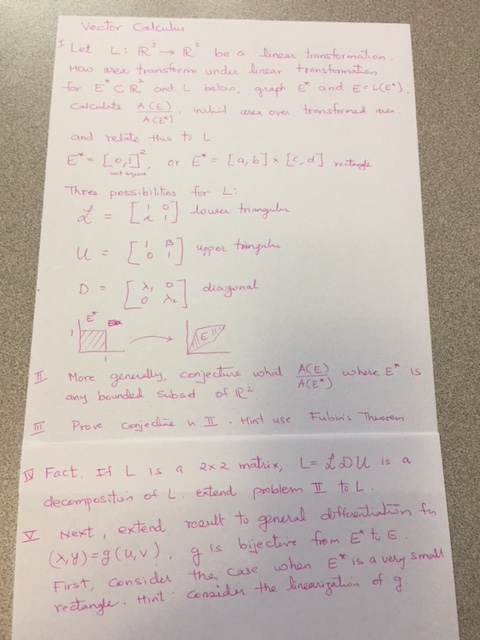 Vector Calculus
I Let L: ℝ² → ℝ² be a linear transformation.
How area transforms under linear transformation
for E* ⊂ ℝ² and L below, graph E* and E = L(E*).
Calculate A(E)/A(E*), initial area over transformed area
and relate this to L
E* = [0,1]², or E* = [a,b] × [c,d] rectangle
unit square
Three possibilities for L:
ℒ = [1 0; α 1] lower triangular
U = [1 β; 0 1] upper triangular
D = [λ₁ 0; 0 λ₂] diagonal
E*
1 E
1
II More generally, conjecture what A(E)/A(E*) where E* is
any bounded subset of ℝ².
III Prove conjecture in II. Hint use Fubini's Theorem
IV Fact. If L is a 2x2 matrix, L = ℒDU is a
decomposition of L. extend problem II to L.
V Next, extend result to general differentiation fn
(x,y) = g(u,v), g is bijective from E* to E.
First, consider the case when E* is a very small
rectangle. Hint: consider the linearization of g